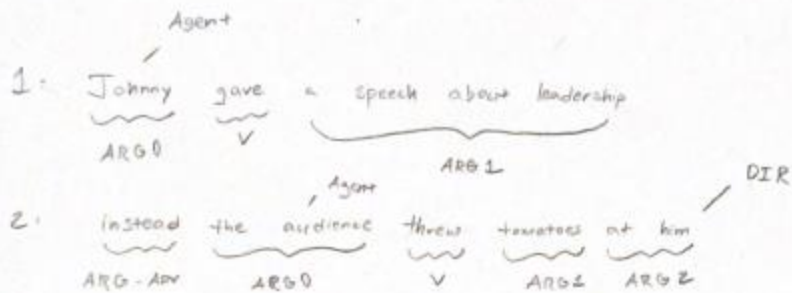 Agent
1. Johnny gave a speech about leadership
ARG0 V ARG1
Agent DIR
2. instead the audience threw tomatoes at him
ARG-ADV ARG0 V ARG1 ARG2